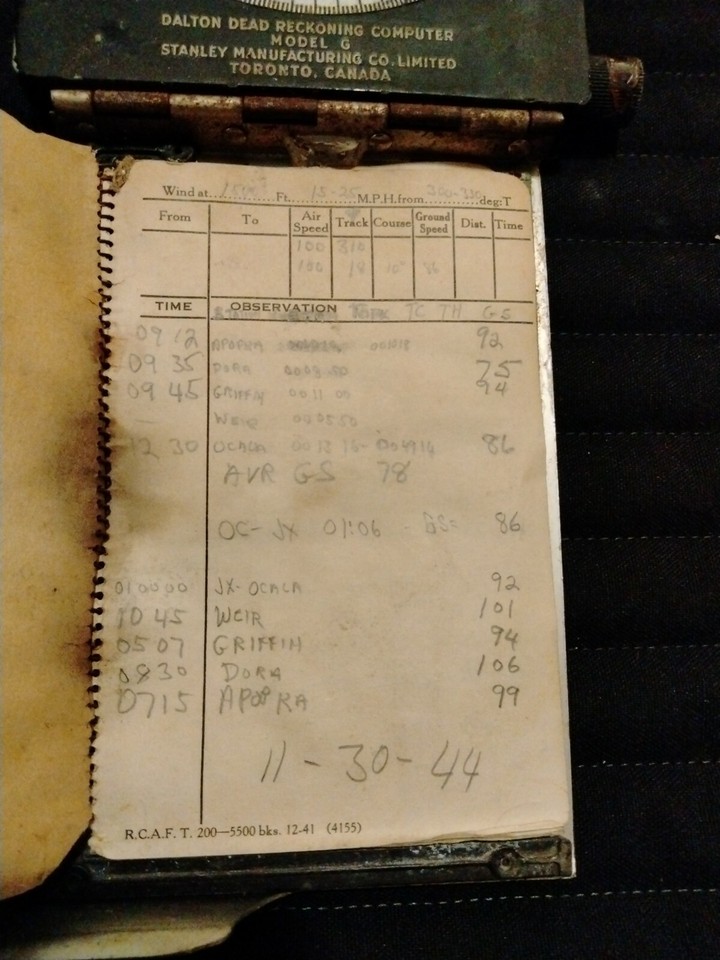 DALTON DEAD RECKONING COMPUTER
MODEL G
STANLEY MANUFACTURING CO. LIMITED
TORONTO, CANADA
Wind at 1500 Ft. 15-25 M.P.H. from 300-330 deg: T
From To Air Speed Track Course Ground Speed Dist. Time
100 310
100 18 10° 86
TIME OBSERVATION TC TH GS
09 12 APOPKA 92
09 35 DORA 75
09 45 GRIFFIN 00 11 00 94
WEIR
12 30 OCALA 86
AVR GS 78
OC- JX 01:06 GS= 86
010000 JX- OCALA 92
10 45 WEIR 101
0507 GRIFFIN 94
0830 DORA 106
0715 APOPKA 99
11-30-44
R.C.A.F. T. 200—5500 bks. 12-41 (4155)